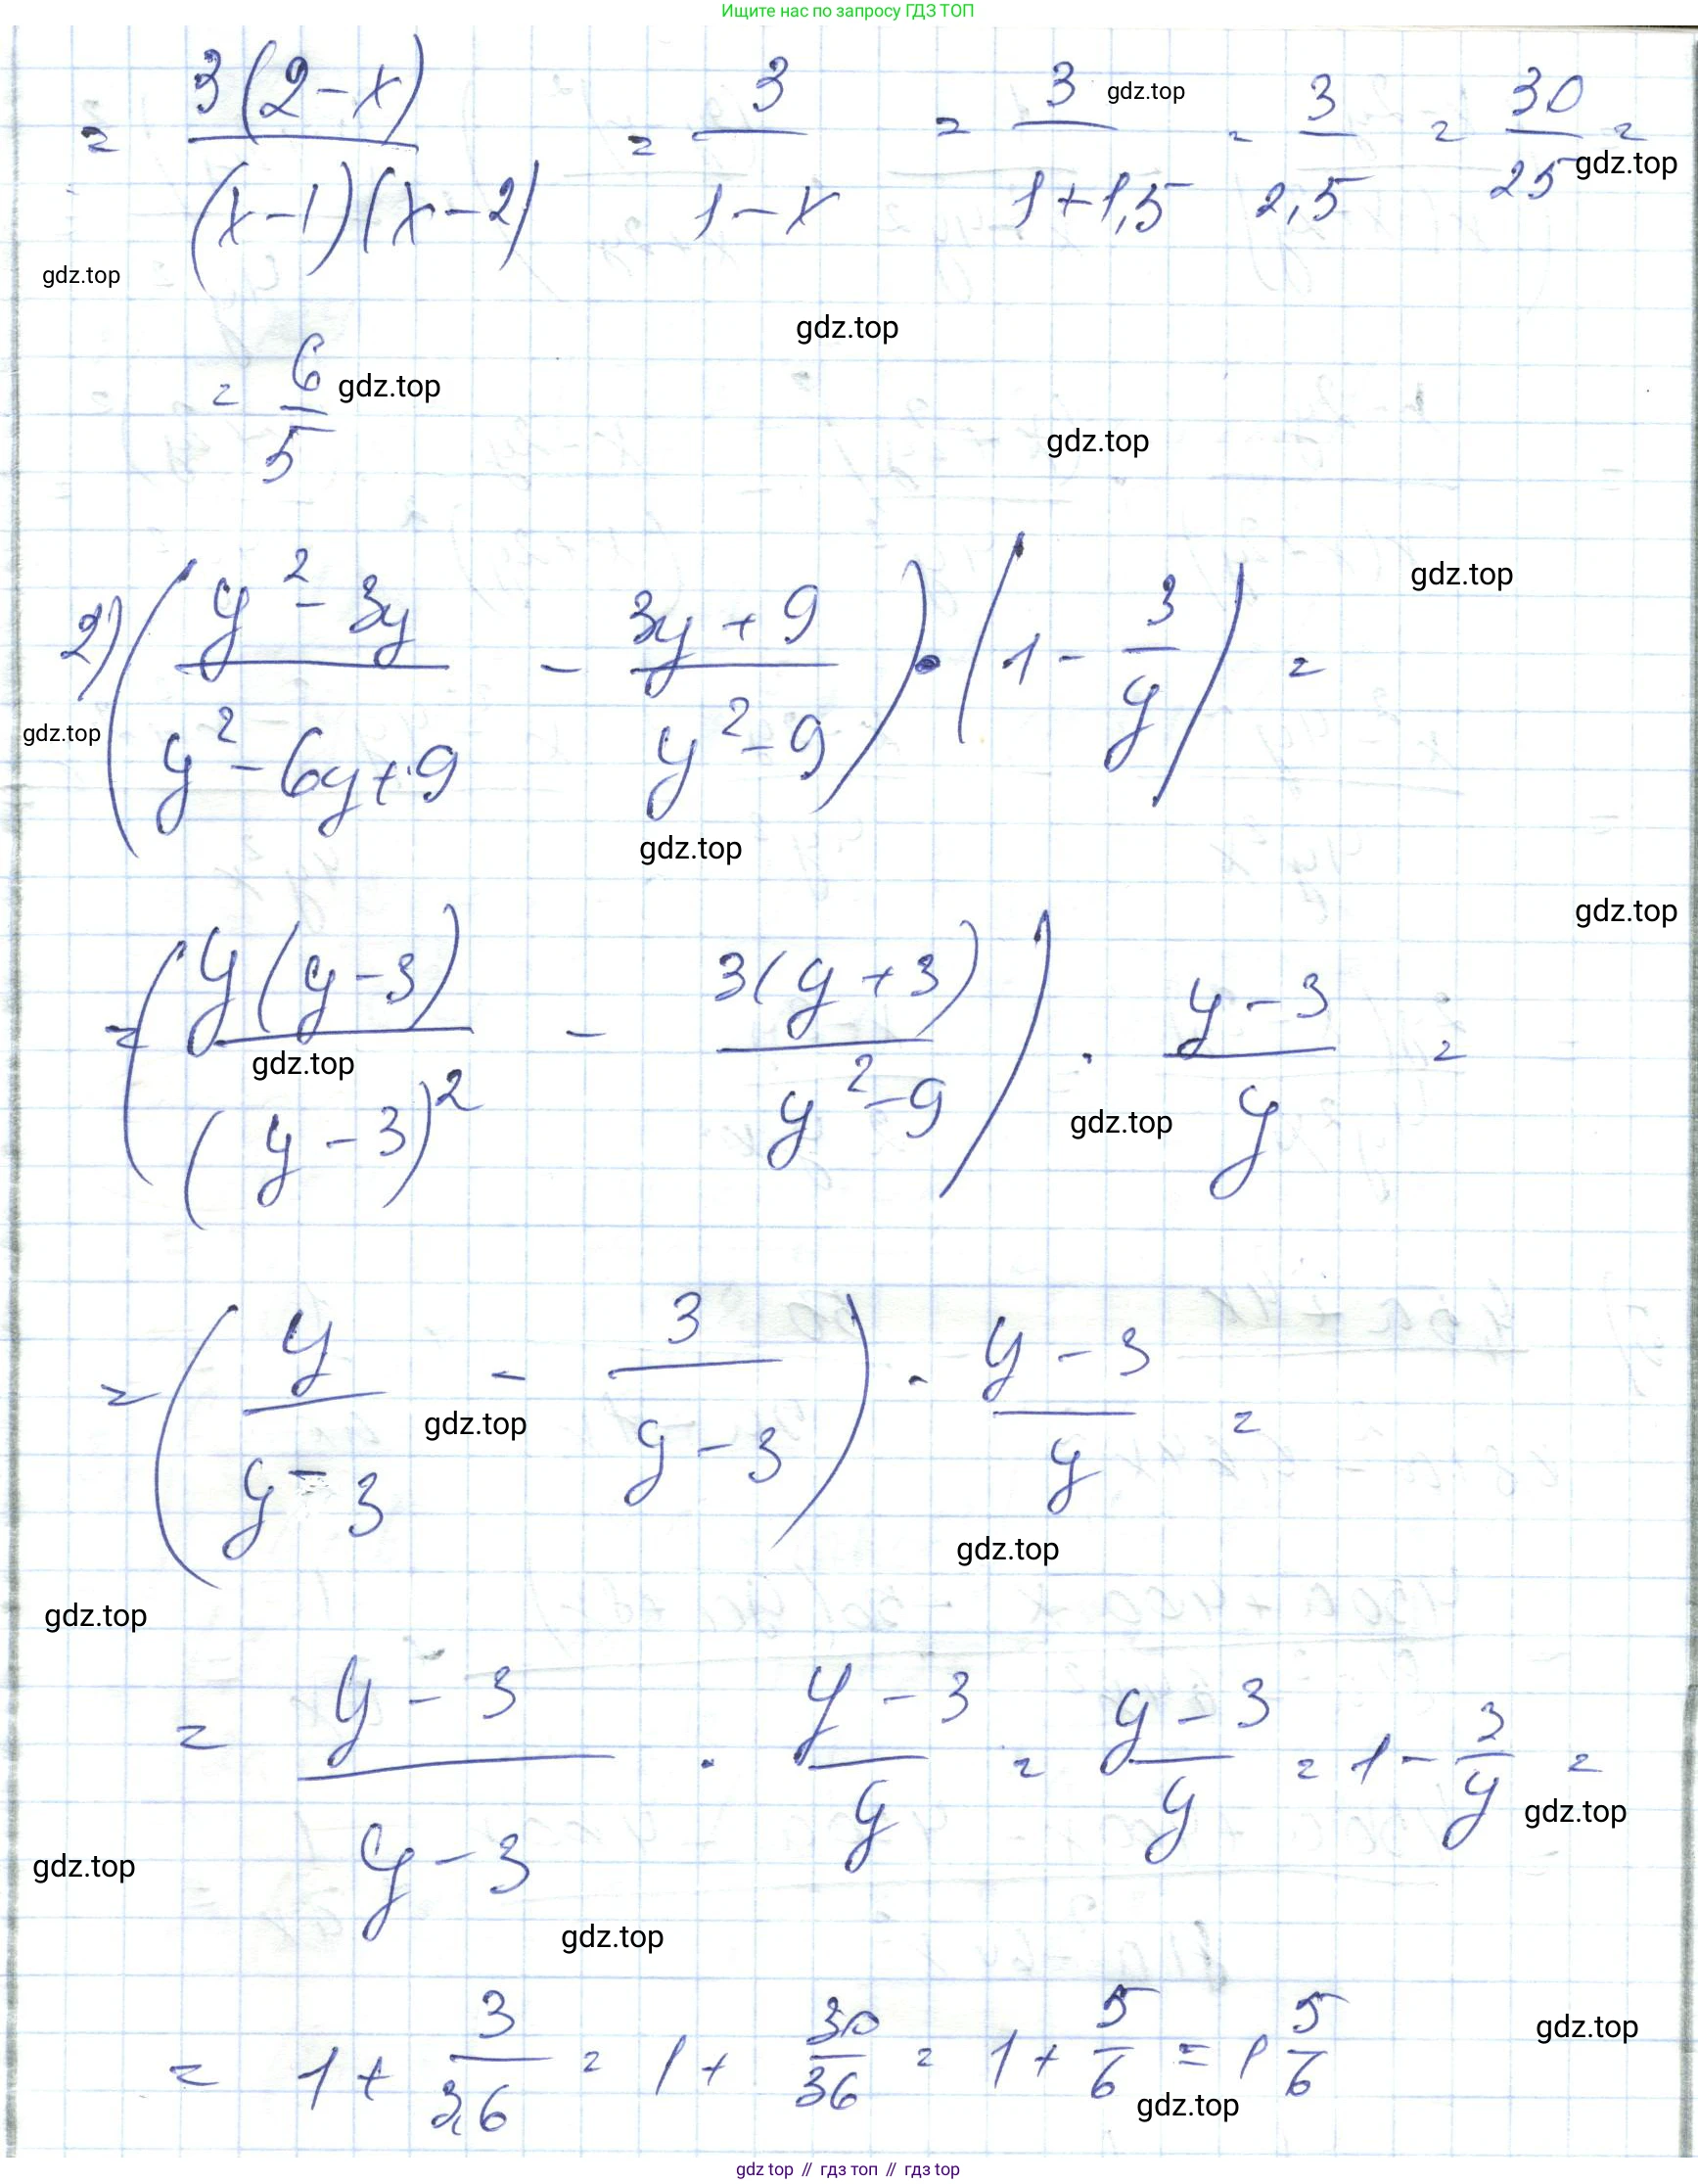 Ищите нас по запросу ГДЗ ТОП
= 3(2-x) / (x-1)(x-2) = 3 / 1-x = 3 / 1+1,5 = 3 / 2,5 = 30 / 25 =
gdz.top
gdz.top
gdz.top
gdz.top
= 6 / 5
gdz.top
gdz.top
2) ( y²-3y / y²-6y+9 - 3y+9 / y²-9 ) · ( 1 - 3 / y ) =
gdz.top
gdz.top
gdz.top
gdz.top
= ( y(y-3) / (y-3)² - 3(y+3) / y²-9 ) · y-3 / y =
gdz.top
gdz.top
= ( y / y-3 - 3 / y-3 ) · y-3 / y =
gdz.top
gdz.top
gdz.top
= y-3 / y-3 · y-3 / y = y-3 / y = 1 - 3 / y =
gdz.top
gdz.top
gdz.top
= 1 + 3 / 3,6 = 1 + 30 / 36 = 1 + 5 / 6 = 1 5/6
gdz.top
gdz.top
gdz.top // гдз топ // гдз top